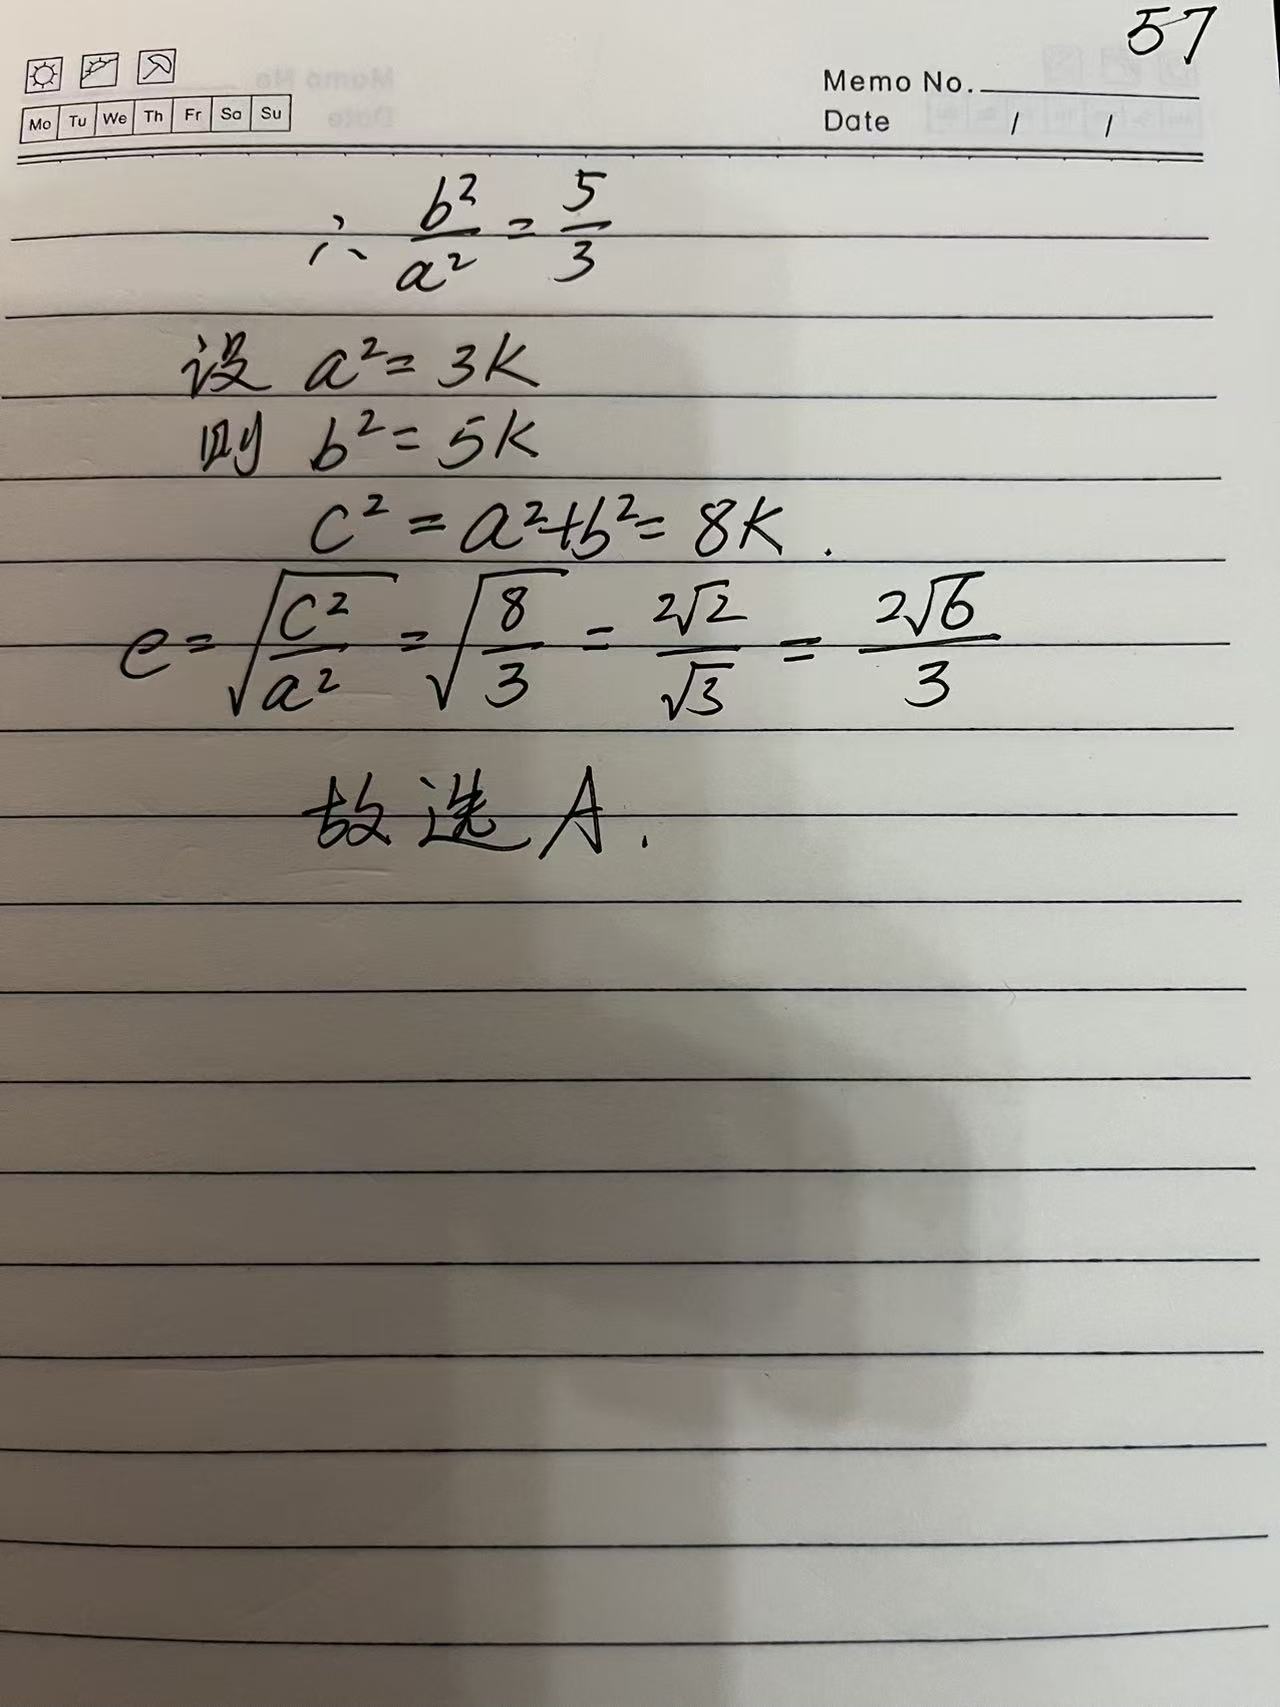 57
Memo No.
Mo Tu We Th Fr Sa Su
Date / /
∴ b²/a² = 5/3
设 a² = 3K
则 b² = 5K
c² = a²+b² = 8K.
e = √(c²/a²) = √(8/3) = 2√2/√3 = 2√6/3
故选 A.